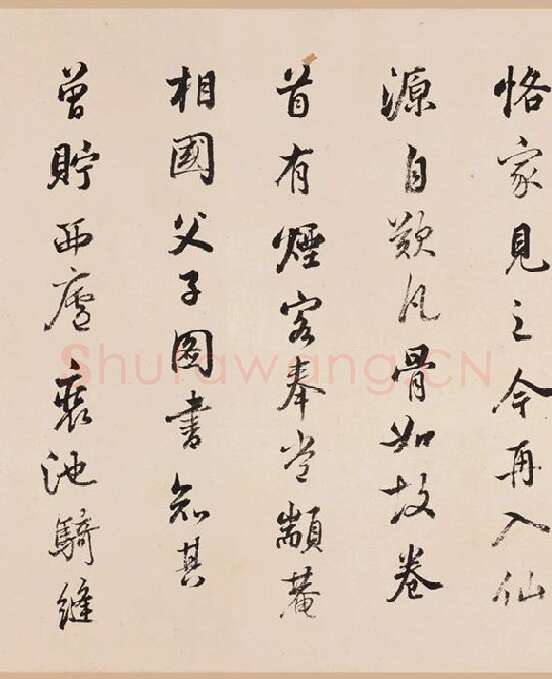 恪家見之今再入仙
源自歎凡骨如故卷
首有煙客奉常顓菴
相國父子圖書知其
曾貯西廬裱池騎縫
Shufawang.CN